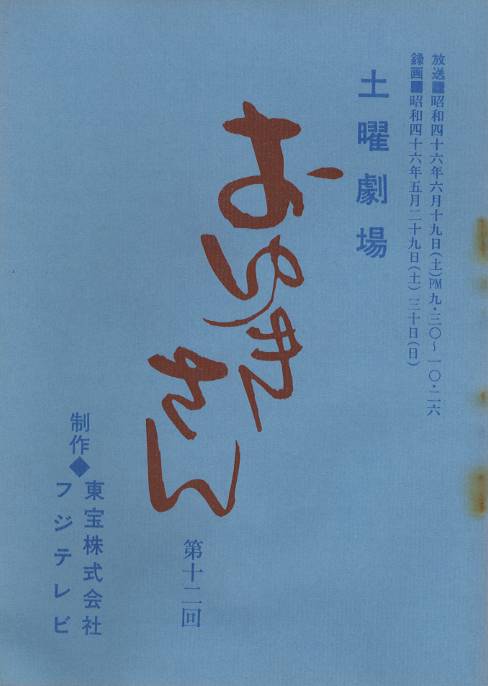 放送■昭和四十六年六月十九日(土)PM九・三〇~一〇・二六
録画■昭和四十六年五月二十九日(土)三十日(日)
土曜劇場
おゆきさん
第十二回
制作◆
東宝株式会社
フジテレビ